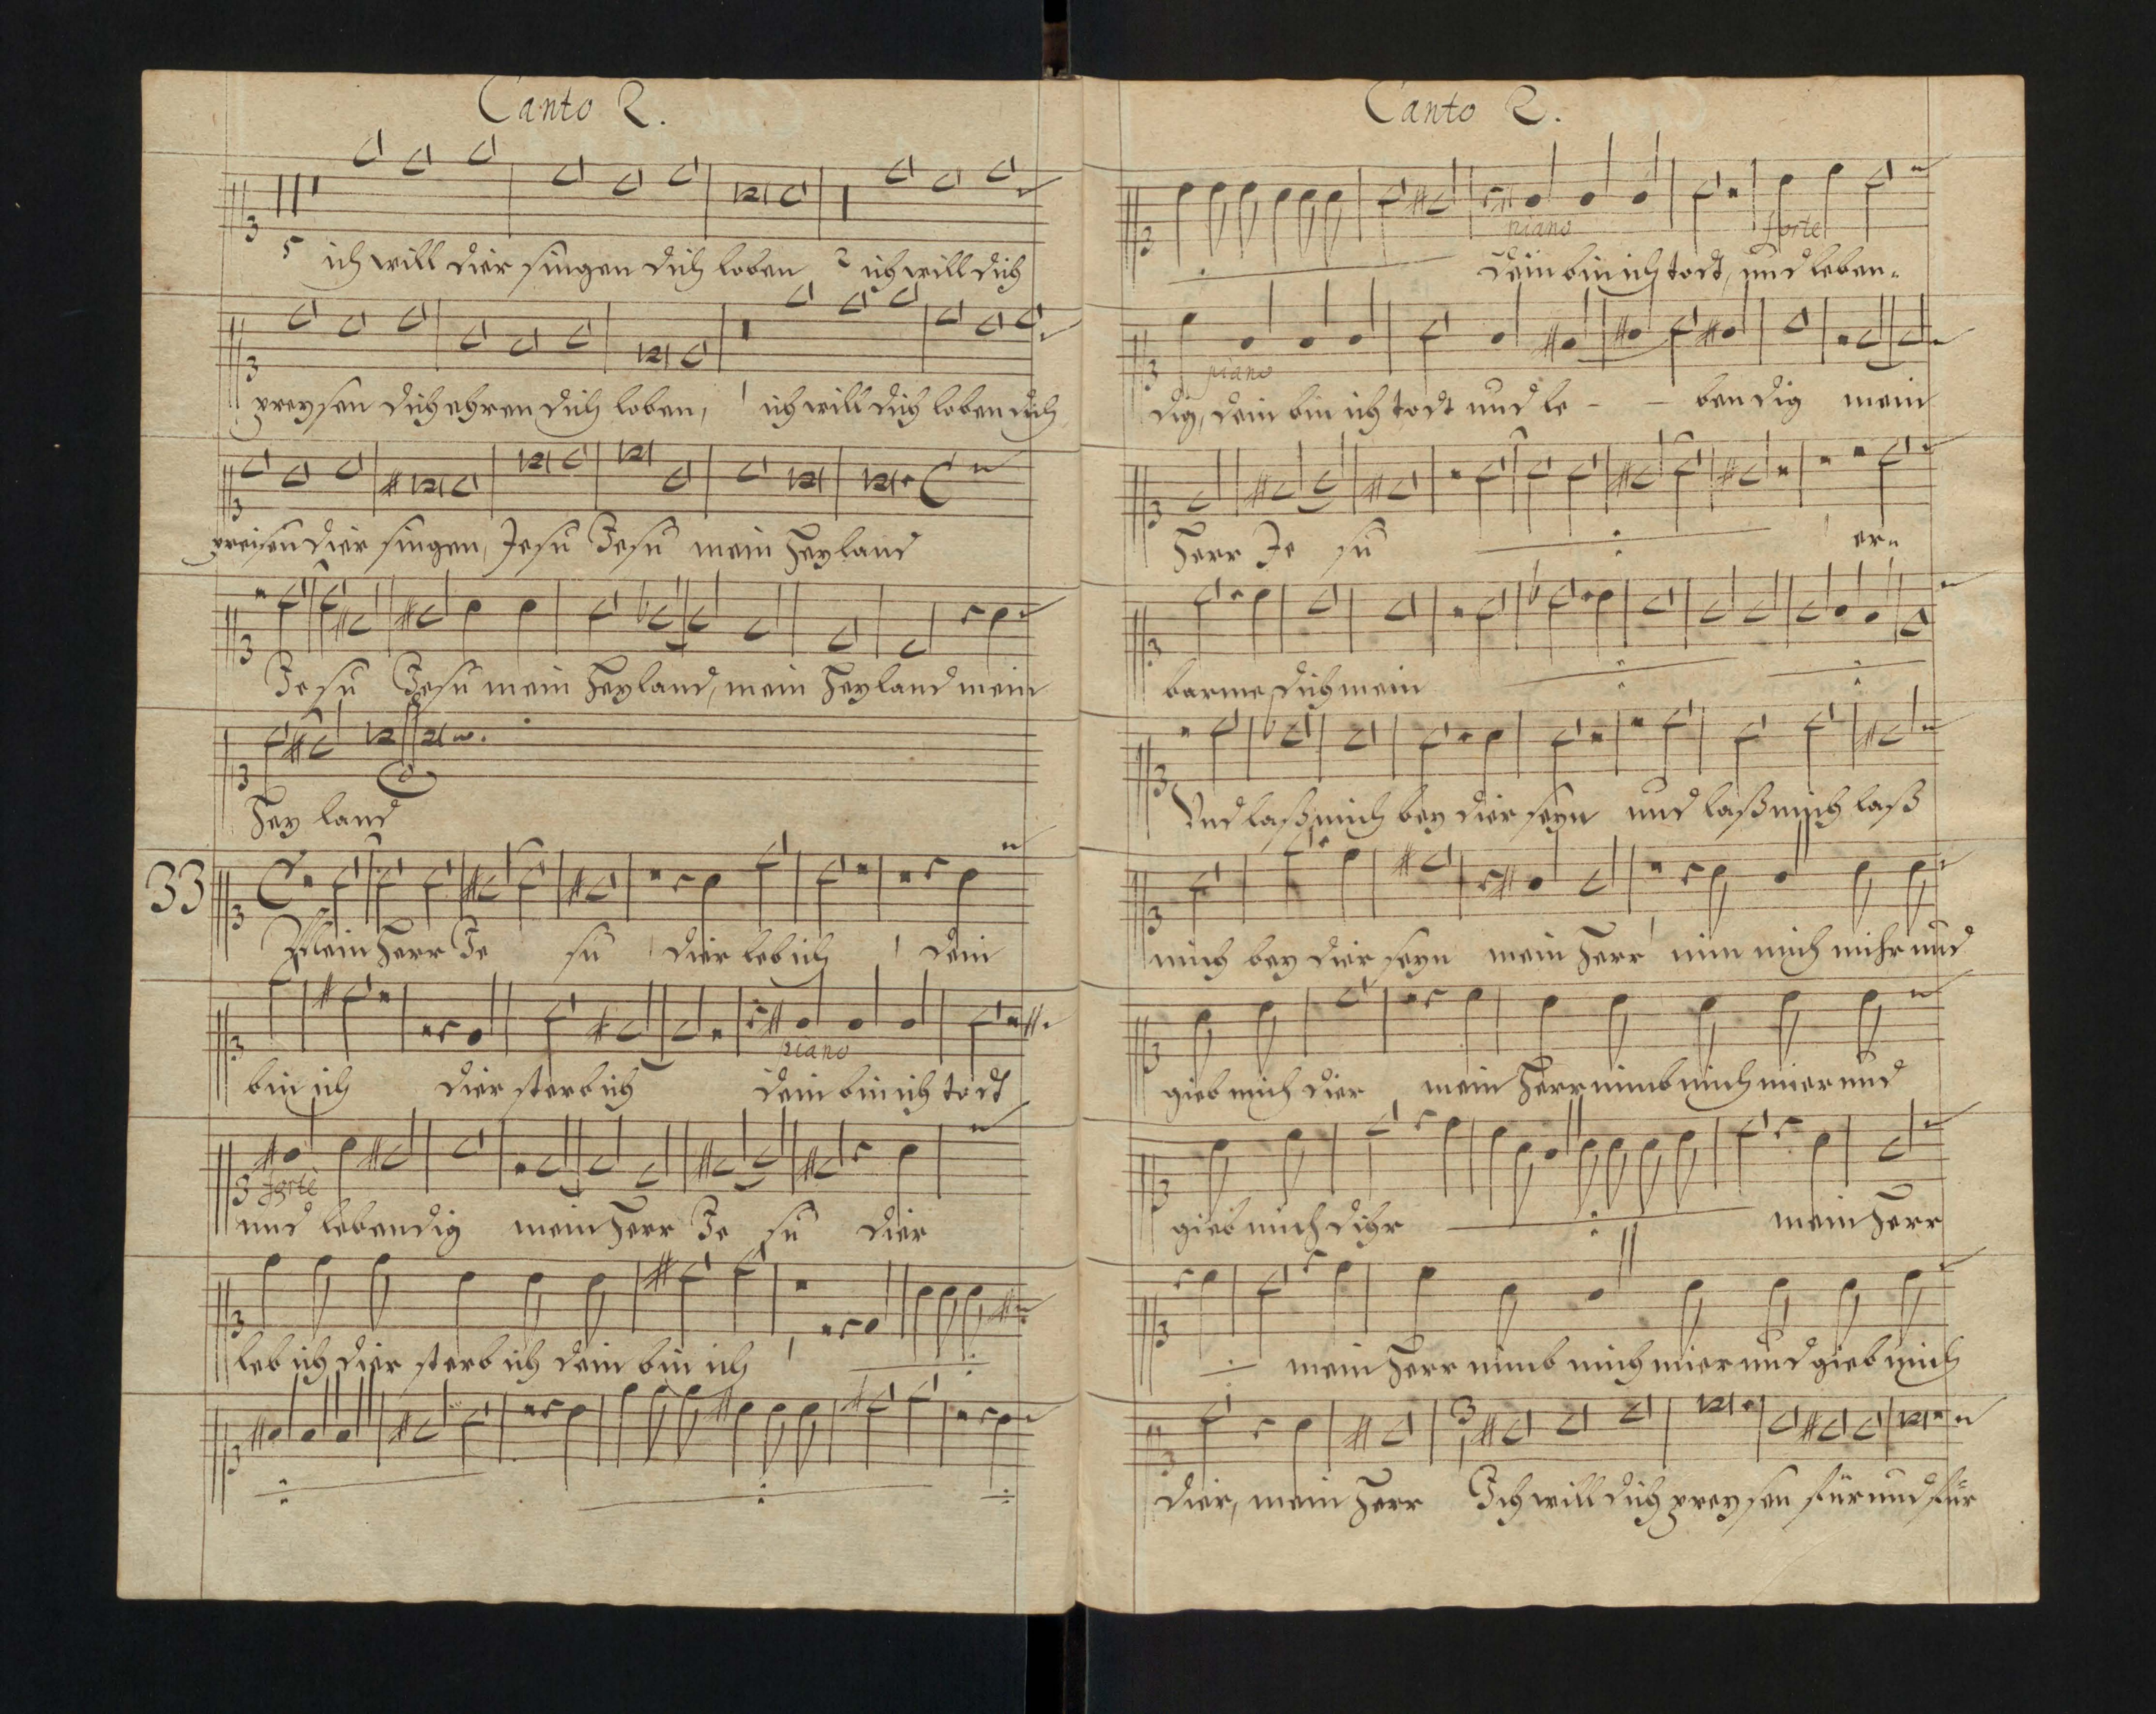 Canto 2.
5 ich will dier singen dich loben 2 ich will dich
preysen dich ehren dich loben, 1 ich will dich loben dich
preisen dier singen, Jesu Jesu mein Heyland
Jesu Jesu mein Heyland, mein Heyland mein
Heyland
33
Mein Herr Je su 1 dier leb ich 1 dein
bin ich dier sterb ich dein bin ich todt
piano
forte
und lebendig mein Herr Je su dier
leb ich dier sterb ich dein bin ich 1
Canto 2.
piano forte
dein bin ich todt, und leben=
piano
dig, dein bin ich todt und le - - bendig mein
Herr Je su 1 er=
barme dich mein
Und laß mich bey dier seyn und laß mich laß
mich bey dier seyn mein Herr nim mich mihr und
gieb mich dier mein Herr nimb mich mier und
gieb mich dihr mein Herr
mein Herr nimb mich mier und gieb mich
dier, mein Herr Ich will dich preysen für und für